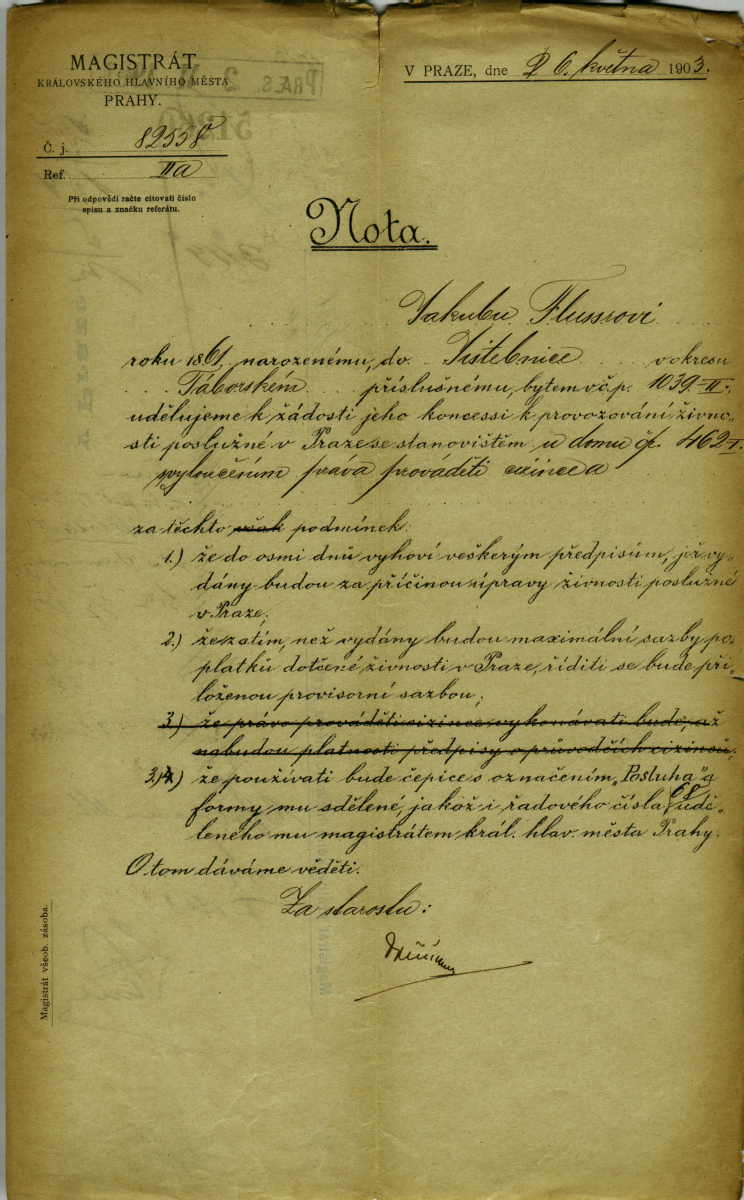 MAGISTRÁT
KRÁLOVSKÉHO HLAVNÍHO MĚSTA
PRAHY.
V PRAZE, dne 6. května 1903.
Č. j. 82558
Ref. IIa
Při odpovědi račte citovati číslo
spisu a značku referátu.
PRÆS.
Nota.
Jakubu Flussrovi
roku 1861 narozenému, do Jistebnice v okresu
Táborském příslušnému, bytem v č.p. 1039-II.
udělujeme k žádosti jeho koncessi k provozování živno-
sti poslužné v Praze se stanovištěm u domu čp. 462-I.
vyloučením práva prováděti cizince a
za těchto však podmínek:
1.) že do osmi dnů vyhoví veškerým předpisům, již vy-
dány budou za příčinou úpravy živnosti poslužné
v Praze;
2.) že zatím, než vydány budou maximální sazby po-
platků dotčené živnosti v Praze, říditi se bude při-
loženou provisorní sazbou;
3.) že právo prováděti cizince vykonávati bude, až
nabudou platnosti předpisy o průvodčích cizinců,
3.) že používati bude čepice s označením „Posluha" a
formy mu sdělené, jakož i řadového čísla 68 udě-
leného mu magistrátem král. hlav. města Prahy.
O tom dáváme věděti.
Za starostu:
Magistrát všeob. zásoba.